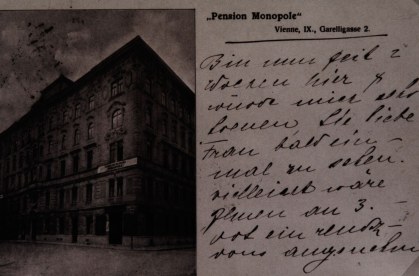 „Pension Monopole"
Vienne, IX., Garelligasse 2.
Bin nun seit 2
Wochen hier &
würde mich sehr
freuen, Sie liebe
Frau bald ein-
mal zu sehen.
Vielleicht wäre
Ihnen am 3.
ein rendez-
vous angenehm